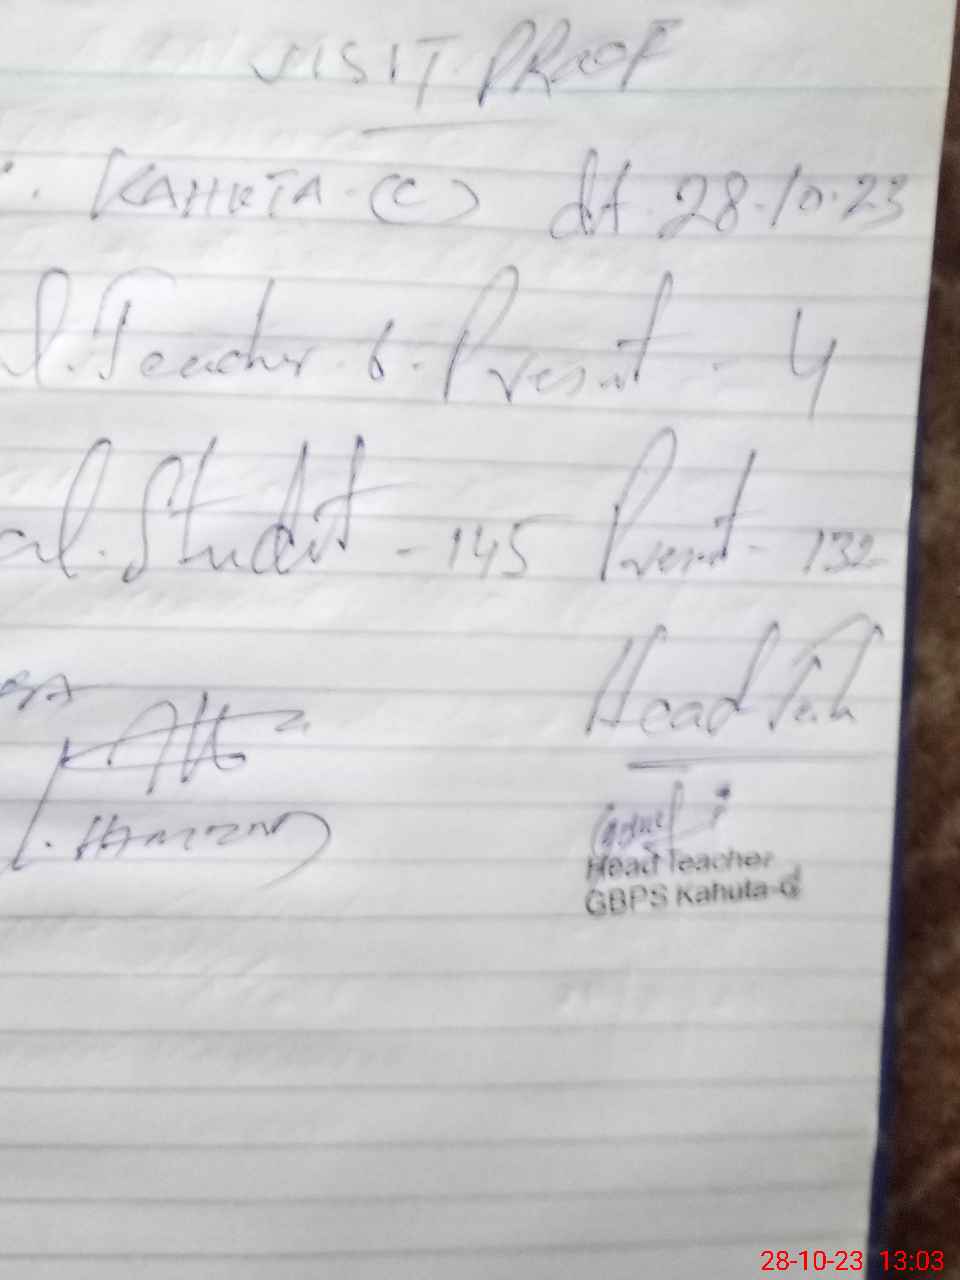 VISIT PROOF
KAHUTA (C) dt 28.10.23
l. Teacher. 6. Present - 4
al. Student - 145 Present - 132
Head
HAMZA
Head Teacher
GBPS Kahuta-C
28-10-23 13:03